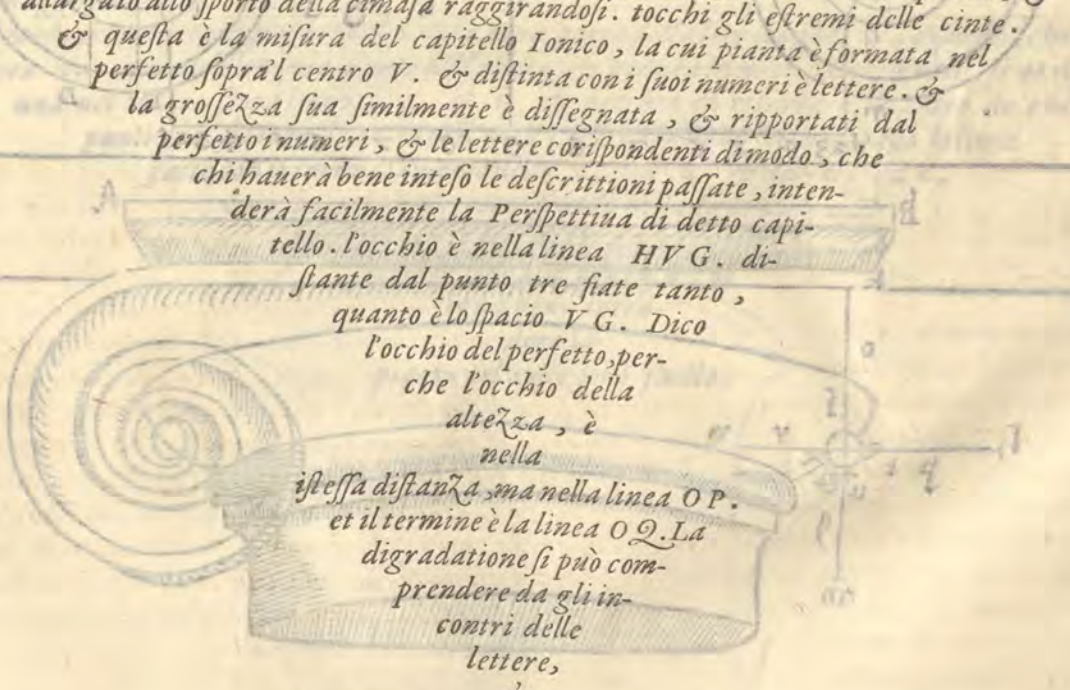 allargato allo ſporto della cimaſa raggirandoſi. tocchi gli eſtremi delle cinte.
& queſta è la miſura del capitello Ionico, la cui pianta è formata nel
perfetto ſopra'l centro V. & diſtinta con i ſuoi numeri è lettere. &
la groſſezza ſua ſimilmente è diſſegnata, & ripportati dal
perfetto i numeri, & le lettere coriſpondenti di modo, che
chi hauerà bene inteſo le deſcrittioni paſſate, inten-
derà facilmente la Perſpettiua di detto capi-
tello. l'occhio è nella linea HVG. di-
ſtante dal punto tre fiate tanto,
quanto è lo ſpacio VG. Dico
l'occhio del perfetto, per-
che l'occhio della
altezza, è
nella
iſteſſa diſtanza, ma nella linea OP.
et il termine è la linea OQ. La
digradatione ſi può com-
prendere da gli in-
contri delle
lettere,